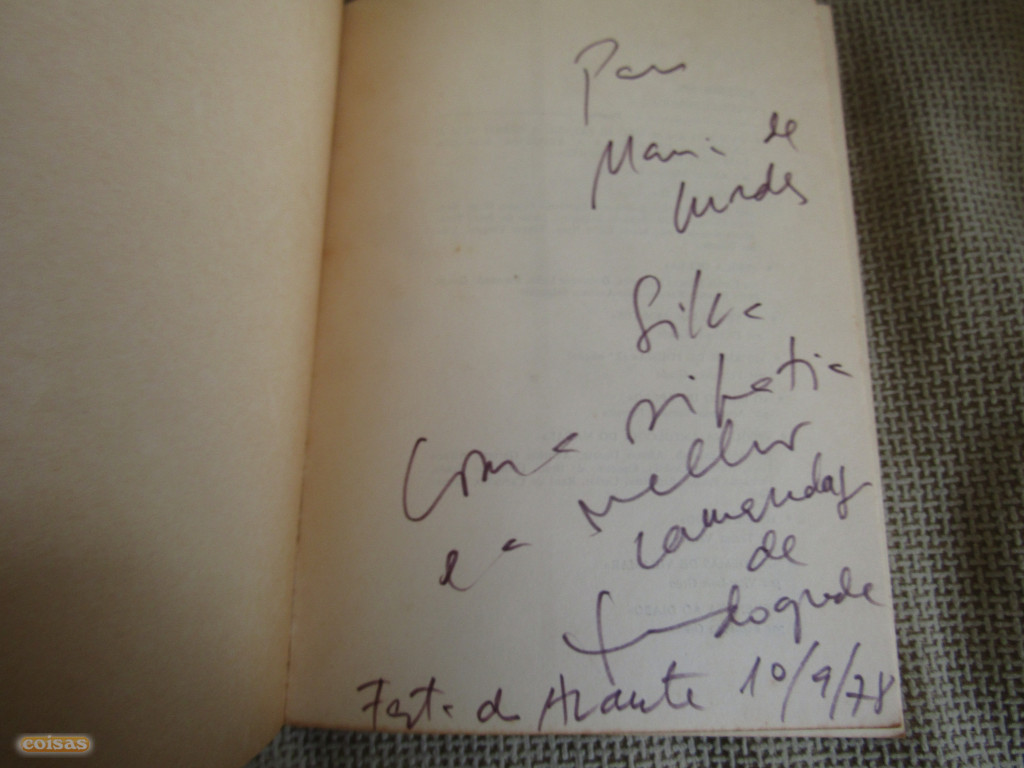 Para
Maria de
Lurdes
Silva
Com a simpatia
e a melhor
camaradagem
de
Festa do Avante 10/9/78
coisas